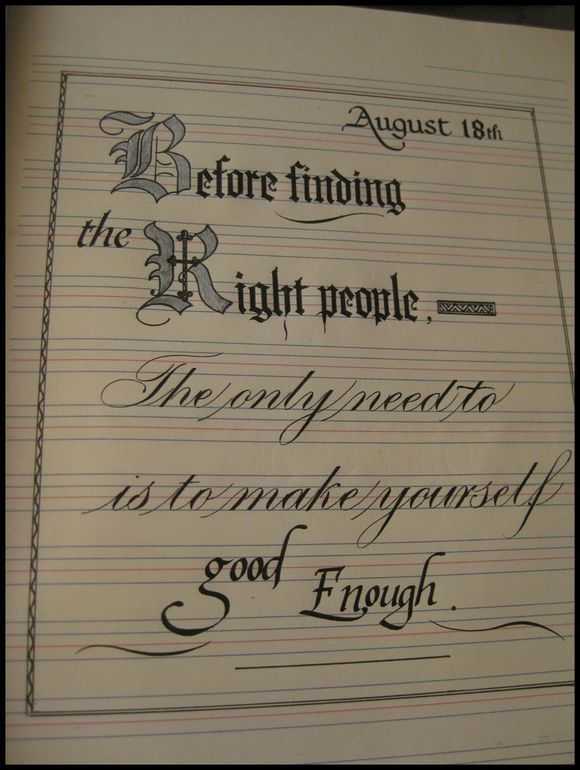 August 18th
Before finding
the
Right people,
The only need to
is to make yourself
good Enough.